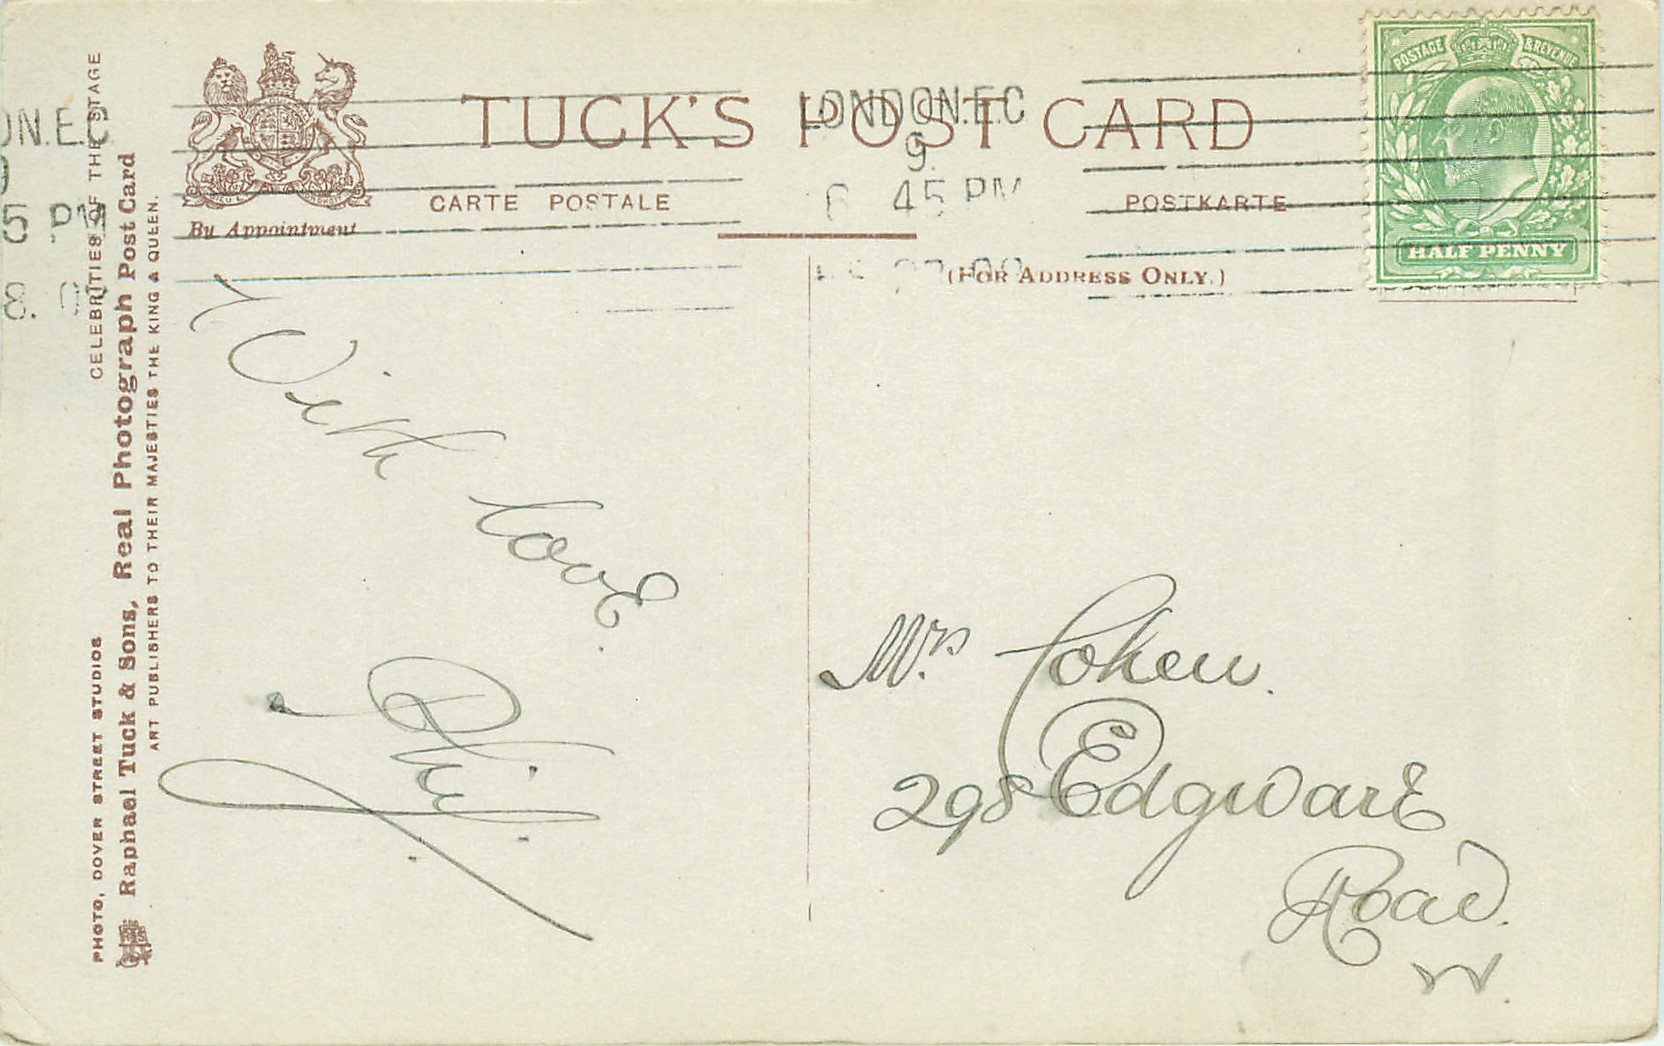 TUCK'S POST CARD
CARTE POSTALE
POSTKARTE
By Appointment
(FOR ADDRESS ONLY.)
LONDON.E.C
9.
45 PM
ON.E.C
5 PM
8.
POSTAGE & REVENUE
HALF PENNY
CELEBRITIES OF THE STAGE
PHOTO, DOVER STREET STUDIOS
Raphael Tuck & Sons, Real Photograph Post Card
ART PUBLISHERS TO THEIR MAJESTIES THE KING & QUEEN.
With love.
Phil.
Mrs Cohen.
298 Edgware
Road.
W.